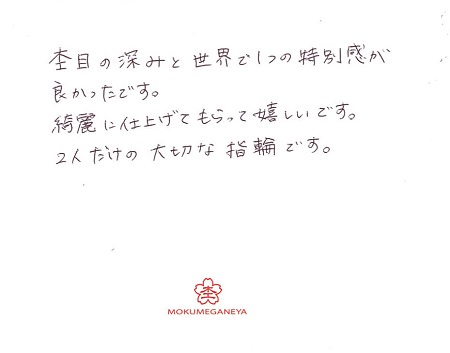 杢目の深みと世界で1つの特別感が
良かったです。
綺麗に仕上げてもらって嬉しいです。
2人だけの大切な指輪です。
杢
MOKUMEGANEYA